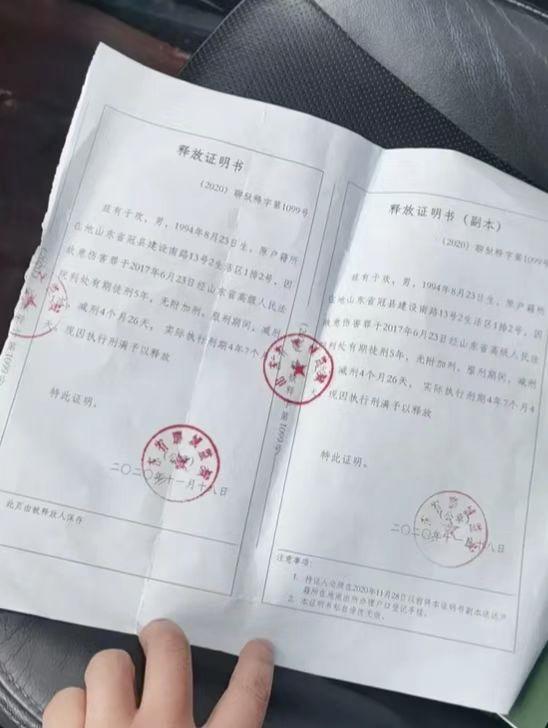 释放证明书
（2020）聊狱释字第1099号
兹有于欢，男，1994年8月23日生，原户籍所
在地山东省冠县建设南路13号2生活区1排2号，因
故意伤害罪于2017年6月23日经山东省高级人民法
院判处有期徒刑5年，无附加刑。服刑期间，减刑
，减刑4个月26天，实际执行刑期4年7个月4
天，现因执行刑满予以释放
特此证明。
二〇二〇年十一月十八日
此页由被释放人保存
第1099号
释放证明书（副本）
（2020）聊狱释字第1099号
兹有于欢，男，1994年8月23日生，原户籍所
在地山东省冠县建设南路13号2生活区1排2号，因
故意伤害罪于2017年6月23日经山东省高级人民法
院判处有期徒刑5年，无附加刑。服刑期间，减刑
，减刑4个月26天，实际执行刑期4年7个月4
天，现因执行刑满予以释放
特此证明。
二〇二〇年十一月十八日
注意事项：
1. 持证人必须在2020年11月28日以前将本证明书副本送达户
籍所在地派出所办理户口登记手续。
2. 本证明书私自涂改无效。